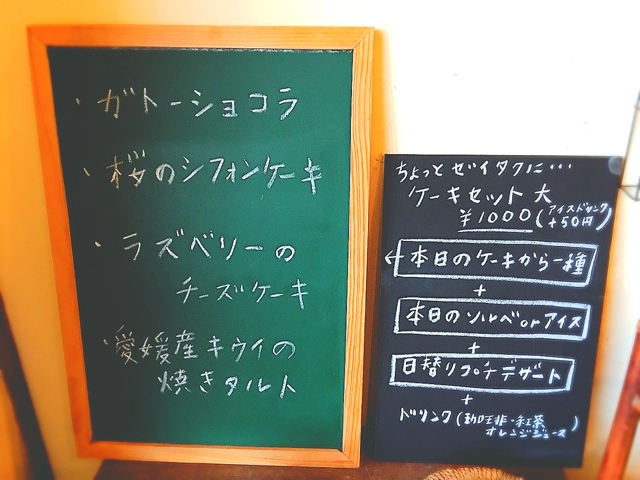 ・ガトーショコラ
・桜のシフォンケーキ
・ラズベリーの
チーズケーキ
・愛媛産キウイの
焼きタルト
ちょっとゼイタクに…
ケーキセット 大
¥1000(アイスドリンク
+50円)
←本日のケーキから一種
+
本日のソルベorアイス
+
日替りプチデザート
+
ドリンク(珈琲・紅茶
オレンジジュース)